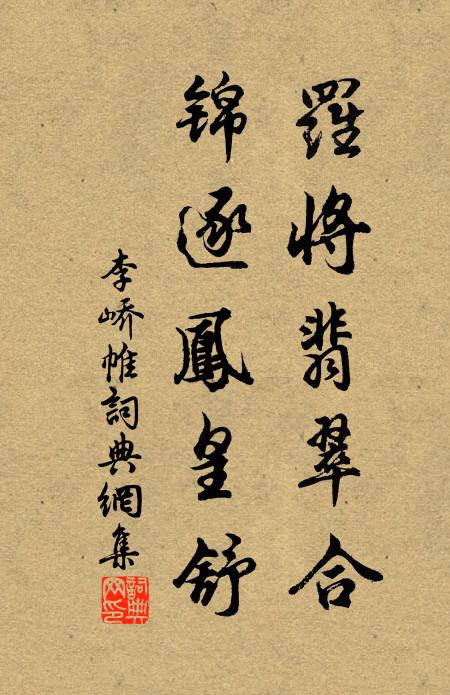 羅將翡翠合
錦逐鳳皇舒
李嶠帷詞典網集
詞典
网印